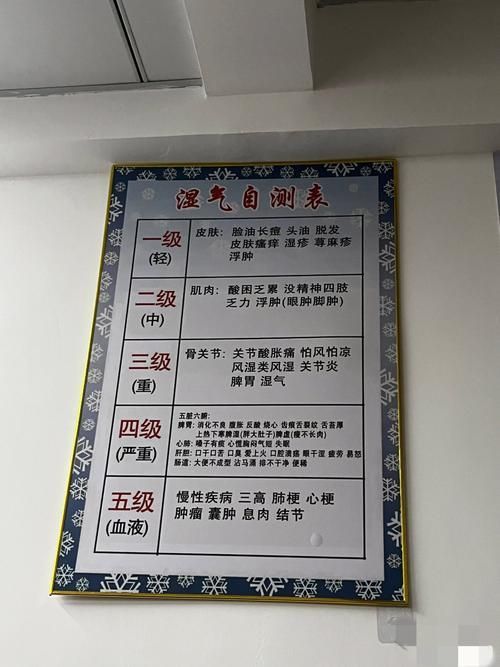 湿气自测表
一级
(轻)
皮肤: 脸油长痘 头油 脱发
皮肤瘙痒 湿疹 荨麻疹
浮肿
二级
(中)
肌肉: 酸困乏累 没精神四肢
乏力 浮肿(眼肿脚肿)
三级
(重)
骨关节: 关节酸胀痛 怕风怕凉
风湿类风湿 关节炎
脾胃 湿气
四级
(严重)
五脏六腑:
脾胃: 消化不良 腹胀 反酸 烧心 齿痕舌裂纹 舌苔厚
上热下寒脾湿(胖大肚子)脾虚(瘦不长肉)
心肺: 嗓子有痰 心慌胸闷气短 失眠
肝胆: 口干口苦 口臭 爱上火 口腔溃疡 眼干涩 疲劳 易怒
肠道: 大便不成型 沾马涌 排不干净 便稀
五级
(血液)
慢性疾病 三高 肺梗 心梗
肿瘤 囊肿 息肉 结节